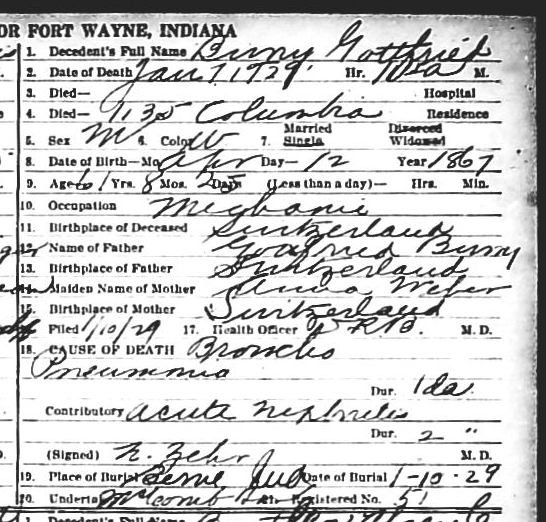 OR FORT WAYNE, INDIANA
1. Decedent's Full Name Burry Gottfried
2. Date of Death Jan 7 1929 Hr. 10 a M.
3. Died— Hospital
4. Died— 1135 Columbia Residence
5. Sex M 6. Color W 7. Married Single Divorced Widowed
8. Date of Birth—Mo. Apr Day— 12 Year 1867
9. Age 61 Yrs. 8 Mos. 25 Days (Less than a day)— Hrs. Min.
10. Occupation Mechanic
11. Birthplace of Deceased Switzerland
12. Name of Father Gottfried Burry
13. Birthplace of Father Switzerland
14. Maiden Name of Mother Anna Weber
15. Birthplace of Mother Switzerland
Filed 1/10/29 17. Health Officer M. D.
18. CAUSE OF DEATH Broncho
Pneumonia
Dur. 1 da
Contributory acute nephritis
Dur. 2 "
(Signed) H. Zehr M. D.
19. Place of Burial Berne, Ind Date of Burial 1-10-29
20. McComb & Son Registered No. 51
Decedent's Full Name